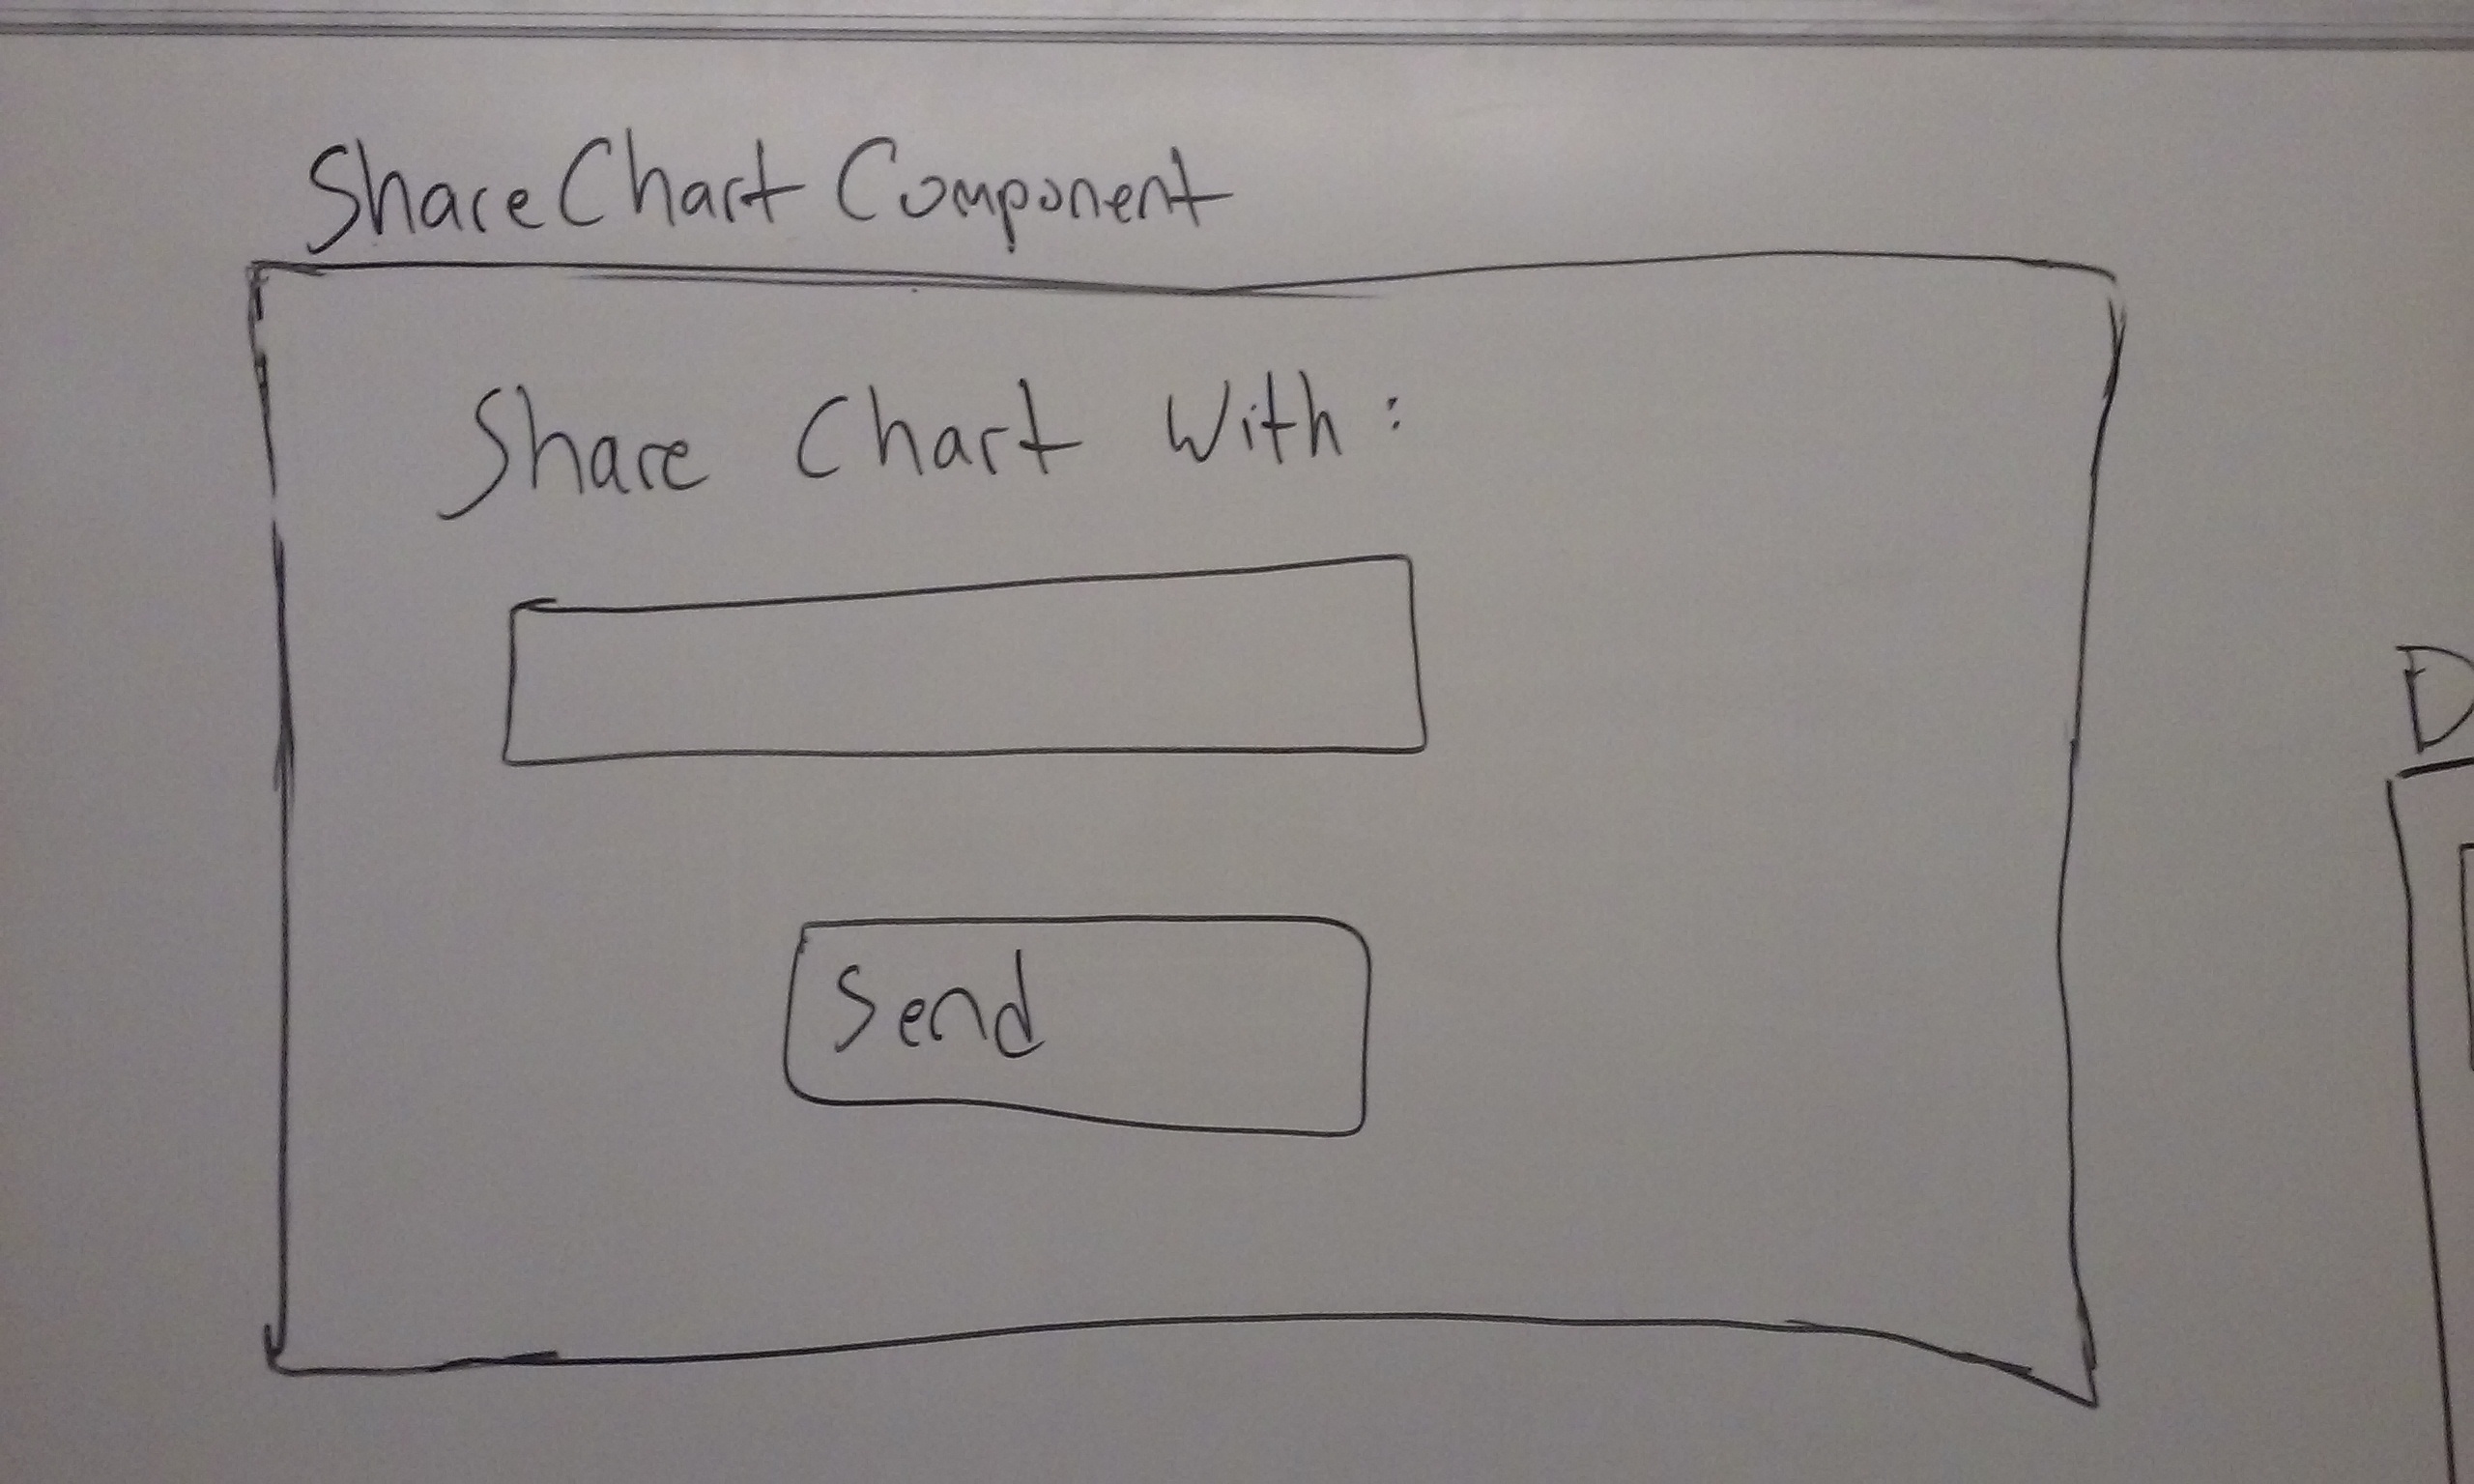 ShareChart Component
Share Chart With:
Send
D